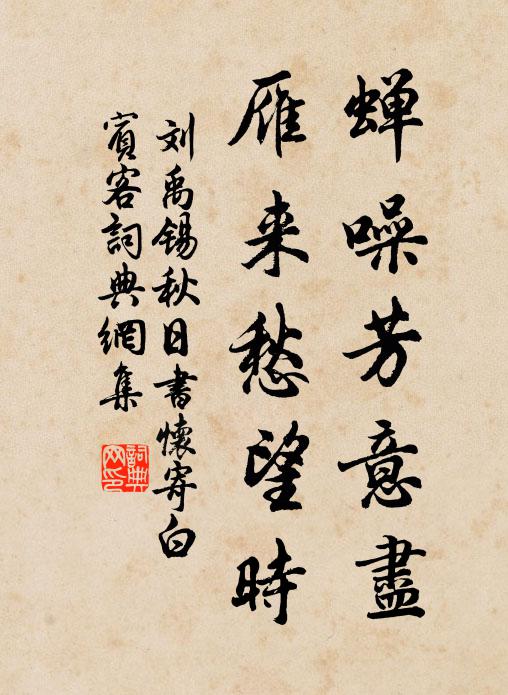 蝉噪芳意盡
雁来愁望時
刘禹锡秋日書懷寄白
賓客詞典網集
詞典网印